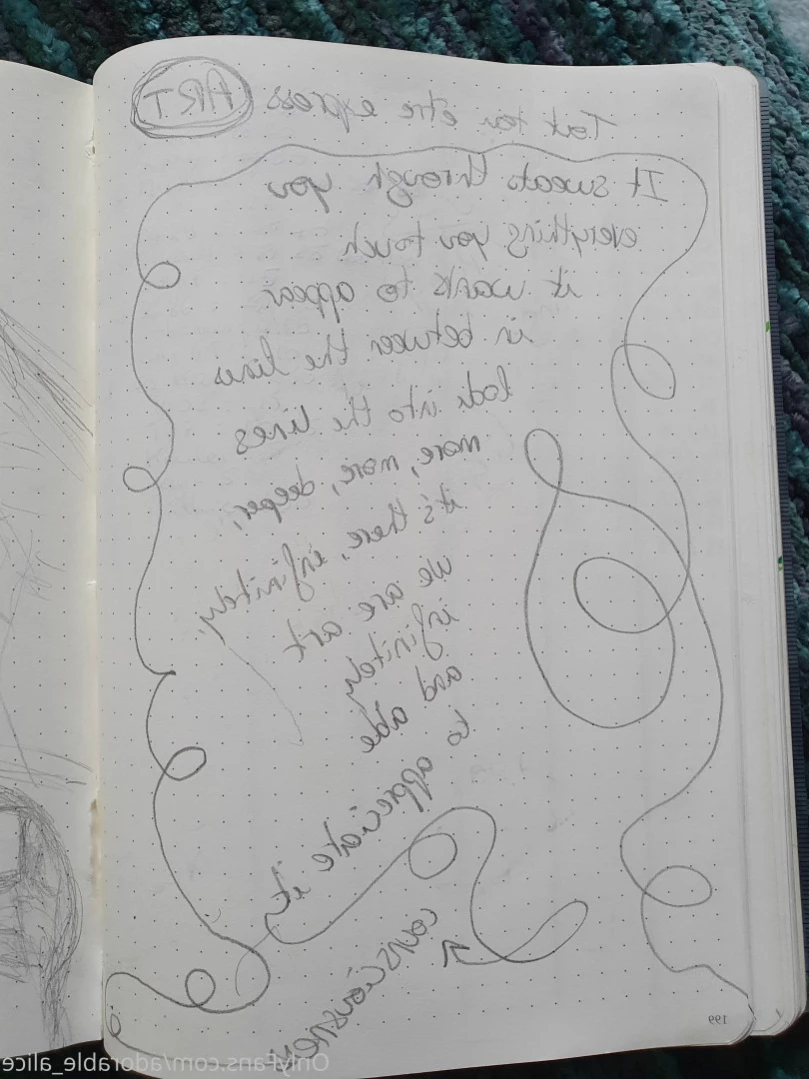 Tout ton être express ART
It sweats through you
everything you touch
it wants to appear
in between the lines
look into the lines
more, more, deeper,
it's there, infinitely,
we are art
infinitely
and able
to appreciate it,
consciousness
199
OnlyFans.com/adorable_alice